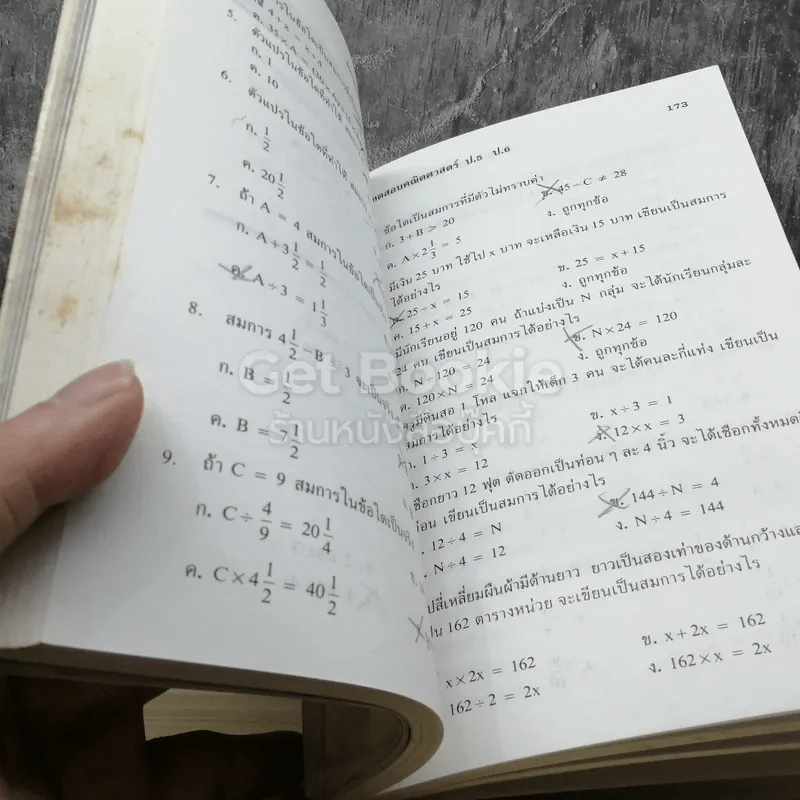 5.
ค. 35×A = 120×
ตัวแปรในข้อใดที่ทำให้
ก. 1
ค. 10
6. ตัวแปรในข้อใดที่ทำให้
ก. 1/2
ค. 20 1/2
7. ถ้า A = 4 สมการในข้อใดเป็น
ก. A+3 1/2 = 1/2
ค. A÷3 = 1 1/3
8. สมการ 4 1/2 − B = 3
ก. B = 1/2
ค. B = 7 1/2
9. ถ้า C = 9 สมการในข้อใดเป็น
ก. C÷ 4/9 = 20 1/4
ค. C×4 1/2 = 40 1/2
173
ทดสอบคณิตศาสตร์ ป.5 ป.6
ข้อใดเป็นสมการที่มีตัวไม่ทราบค่า
ก. 3+B > 20 ข. 45−C ≠ 28
ค. A×2 1/3 = 5 ง. ถูกทุกข้อ
มีเงิน 25 บาท ใช้ไป x บาท จะเหลือเงิน 15 บาท เขียนเป็นสมการ
ได้อย่างไร
25−x = 15 ข. 25 = x+15
ค. 15+x = 25 ง. ถูกทุกข้อ
มีนักเรียนอยู่ 120 คน ถ้าแบ่งเป็น N กลุ่ม จะได้นักเรียนกลุ่มละ
24 คน เขียนเป็นสมการได้อย่างไร
ก. N÷120 = 24 ข. N×24 = 120
ค. 120×N = 24 ง. ถูกทุกข้อ
ครูมีดินสอ 1 โหล แจกให้เด็ก 3 คน จะได้คนละกี่แท่ง เขียนเป็น
สมการได้อย่างไร
1÷3 = x ข. x÷3 = 1
3×x = 12 ง. 12×x = 3
เชือกยาว 12 ฟุต ตัดออกเป็นท่อน ๆ ละ 4 นิ้ว จะได้เชือกทั้งหมด
ท่อน เขียนเป็นสมการได้อย่างไร
12÷4 = N ข. 144÷N = 4
N÷4 = 12 ง. N÷4 = 144
สี่เหลี่ยมผืนผ้ามีด้านยาว ยาวเป็นสองเท่าของด้านกว้าง
162 ตารางหน่วย จะเขียนเป็นสมการได้อย่างไร
x×2x = 162 ข. x+2x = 162
162÷2 = 2x ง. 162×x = 2x
Get Bookie
ร้านหนังสือบุ๊คกี้